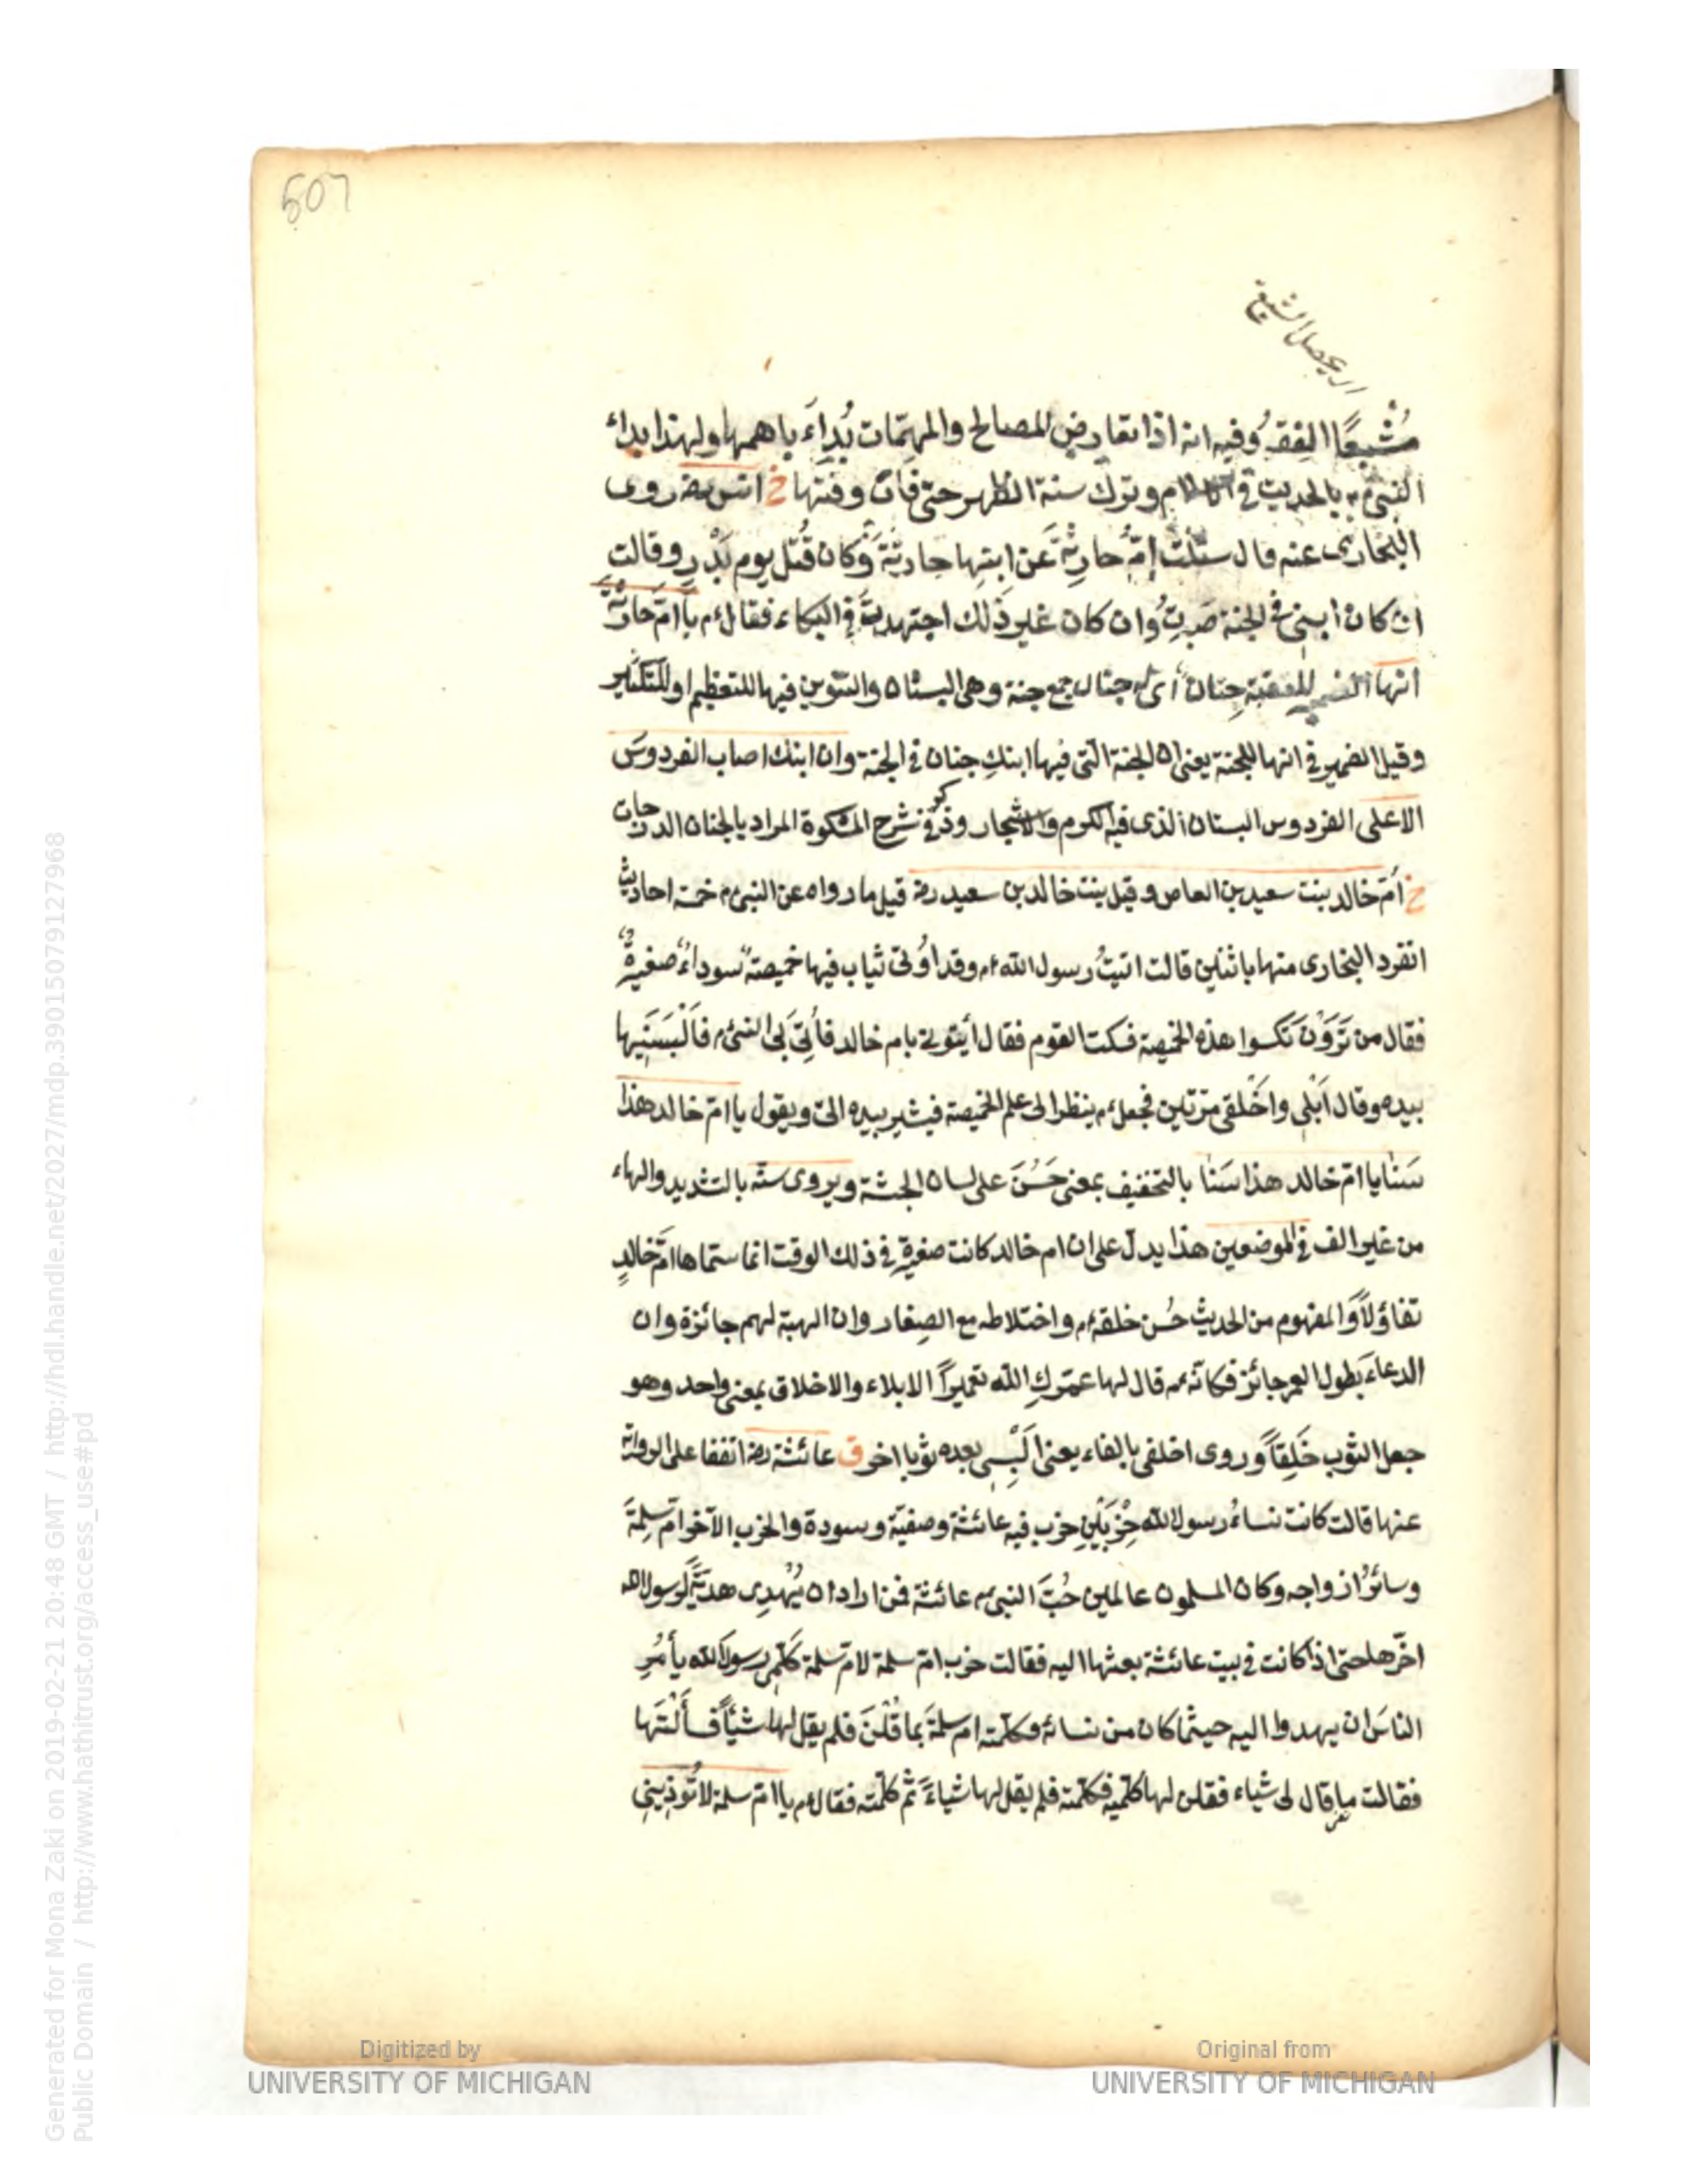 507
مُشبعًا الفقه وفيه انه اذا تعارض المصالح والمهمّات بُداَء باهمها ولهذا بداء
النبىء م بالحديث فى وترك سنة الظهر حتى فات وقتها خ انس رضه روى
البخارى عنه قال سئلت امّ حارثة عن ابنها حارثة وكان قُتل يوم بَدْر وقالت
ان كان ابنى فى الجنة صَبرتُ وان كان غير ذلك اجتهدت فى البكاء فقال ءم يا امّ حارثة
انها الضمير للعقبة جِنان اى جنان جمع جنة وهى البستان والتنوين فيها للتعظيم او للتكثير
وقيل الضمير فى انها للجنة يعنى ان الجنة الّتى فيها ابنكِ جنان فى الجنة وان ابنك اصاب الفردوسَ
الاعلى الفردوس البستان الذى فيه الكرم والاشجار وذكر فى شرح المشكوة المراد بالجنان الدرجات
خ امّ خالد بنت سعيد بن العاص وقيل بنت خالد بن سعيد رضه قيل ما رواه عن النبىء م خمسة احاديث
انفرد البخارى منها باثنين قالت اتيتُ رسول الله ءم وقد اُوتى ثياب فيها خميصةٌ سوداءُ صغيرةٌ
فقال من تَرَوْن نَكسوا هذه الخميصة فسكت القوم فقال أيتونى بام خالد فأُتِىَ بى النبىء م فَاَلْبَسَنِيها
بيده وقال اَبْلى واخْلقى مرّتين فجعل ءم ينظر الى علم الخميصة فيشير بيده الىّ ويقول يا امّ خالد هذا
سَنَا يا امّ خالد هذا سَنَا بالتخفيف بمعنى حَسُنَ على لسان الحبشة ويروى سنّه بالتشديد والهاء
من غير الف فى الموضعين هذا يدلّ على ان ام خالد كانت صغيرة فى ذلك الوقت انما سمّاها امَّ خالدٍ
تفاؤلاً والمفهوم من الحديث حُسن خلقه ءم واختلاطه مع الصِغار وان الهبة لهم جائزة وان
الدعاءَ بطول العمر جائز فكانّه ءم قال لها عمّركِ الله تعميراً الابلاء والاخلاق بمعنى واحد وهو
جعل الثوب خَلِقاً وروى اخلفى بالفاء يعنى اَلْبِسِى بعده ثوبا اخر ق عائشة رضه اتفقا على الرواية
عنها قالت كانت نساءُ رسول الله حِزْبَيْنِ حزب فيه عائشة وصفيّة وسودة والحزب الآخر امّ سلِمةَ
وسائرُ ازواجه وكان المسلمون عالمين حُبَّ النبىء م عائشة فمن اراد ان يُهْدِى هديّةً لرسول الله
اخّرها حتى اذا كانت فى بيت عائشة بعثها اليه فقالت حزب امّ سلمة لامّ سلمة كلّمى رسول الله يأمُرِ
الناسَ ان يهدوا اليه حيثما كان من نسائه فكلّمته امّ سلمةَ بما قُلْنَ فلم يقل لها شيأً فسألْنَها
فقالت ما قال لى شياء فقلن لها كلّميه فكلّمته فلم يقل لها شياءً ثم كلّمته فقال ءم يا امّ سلمة لا تُوذِينى
Digitized by
UNIVERSITY OF MICHIGAN
Original from
UNIVERSITY OF MICHIGAN
Generated for Mona Zaki on 2019-02-21 20:48 GMT / http://hdl.handle.net/2027/mdp.39015079127968
Public Domain / http://www.hathitrust.org/access_use#pd